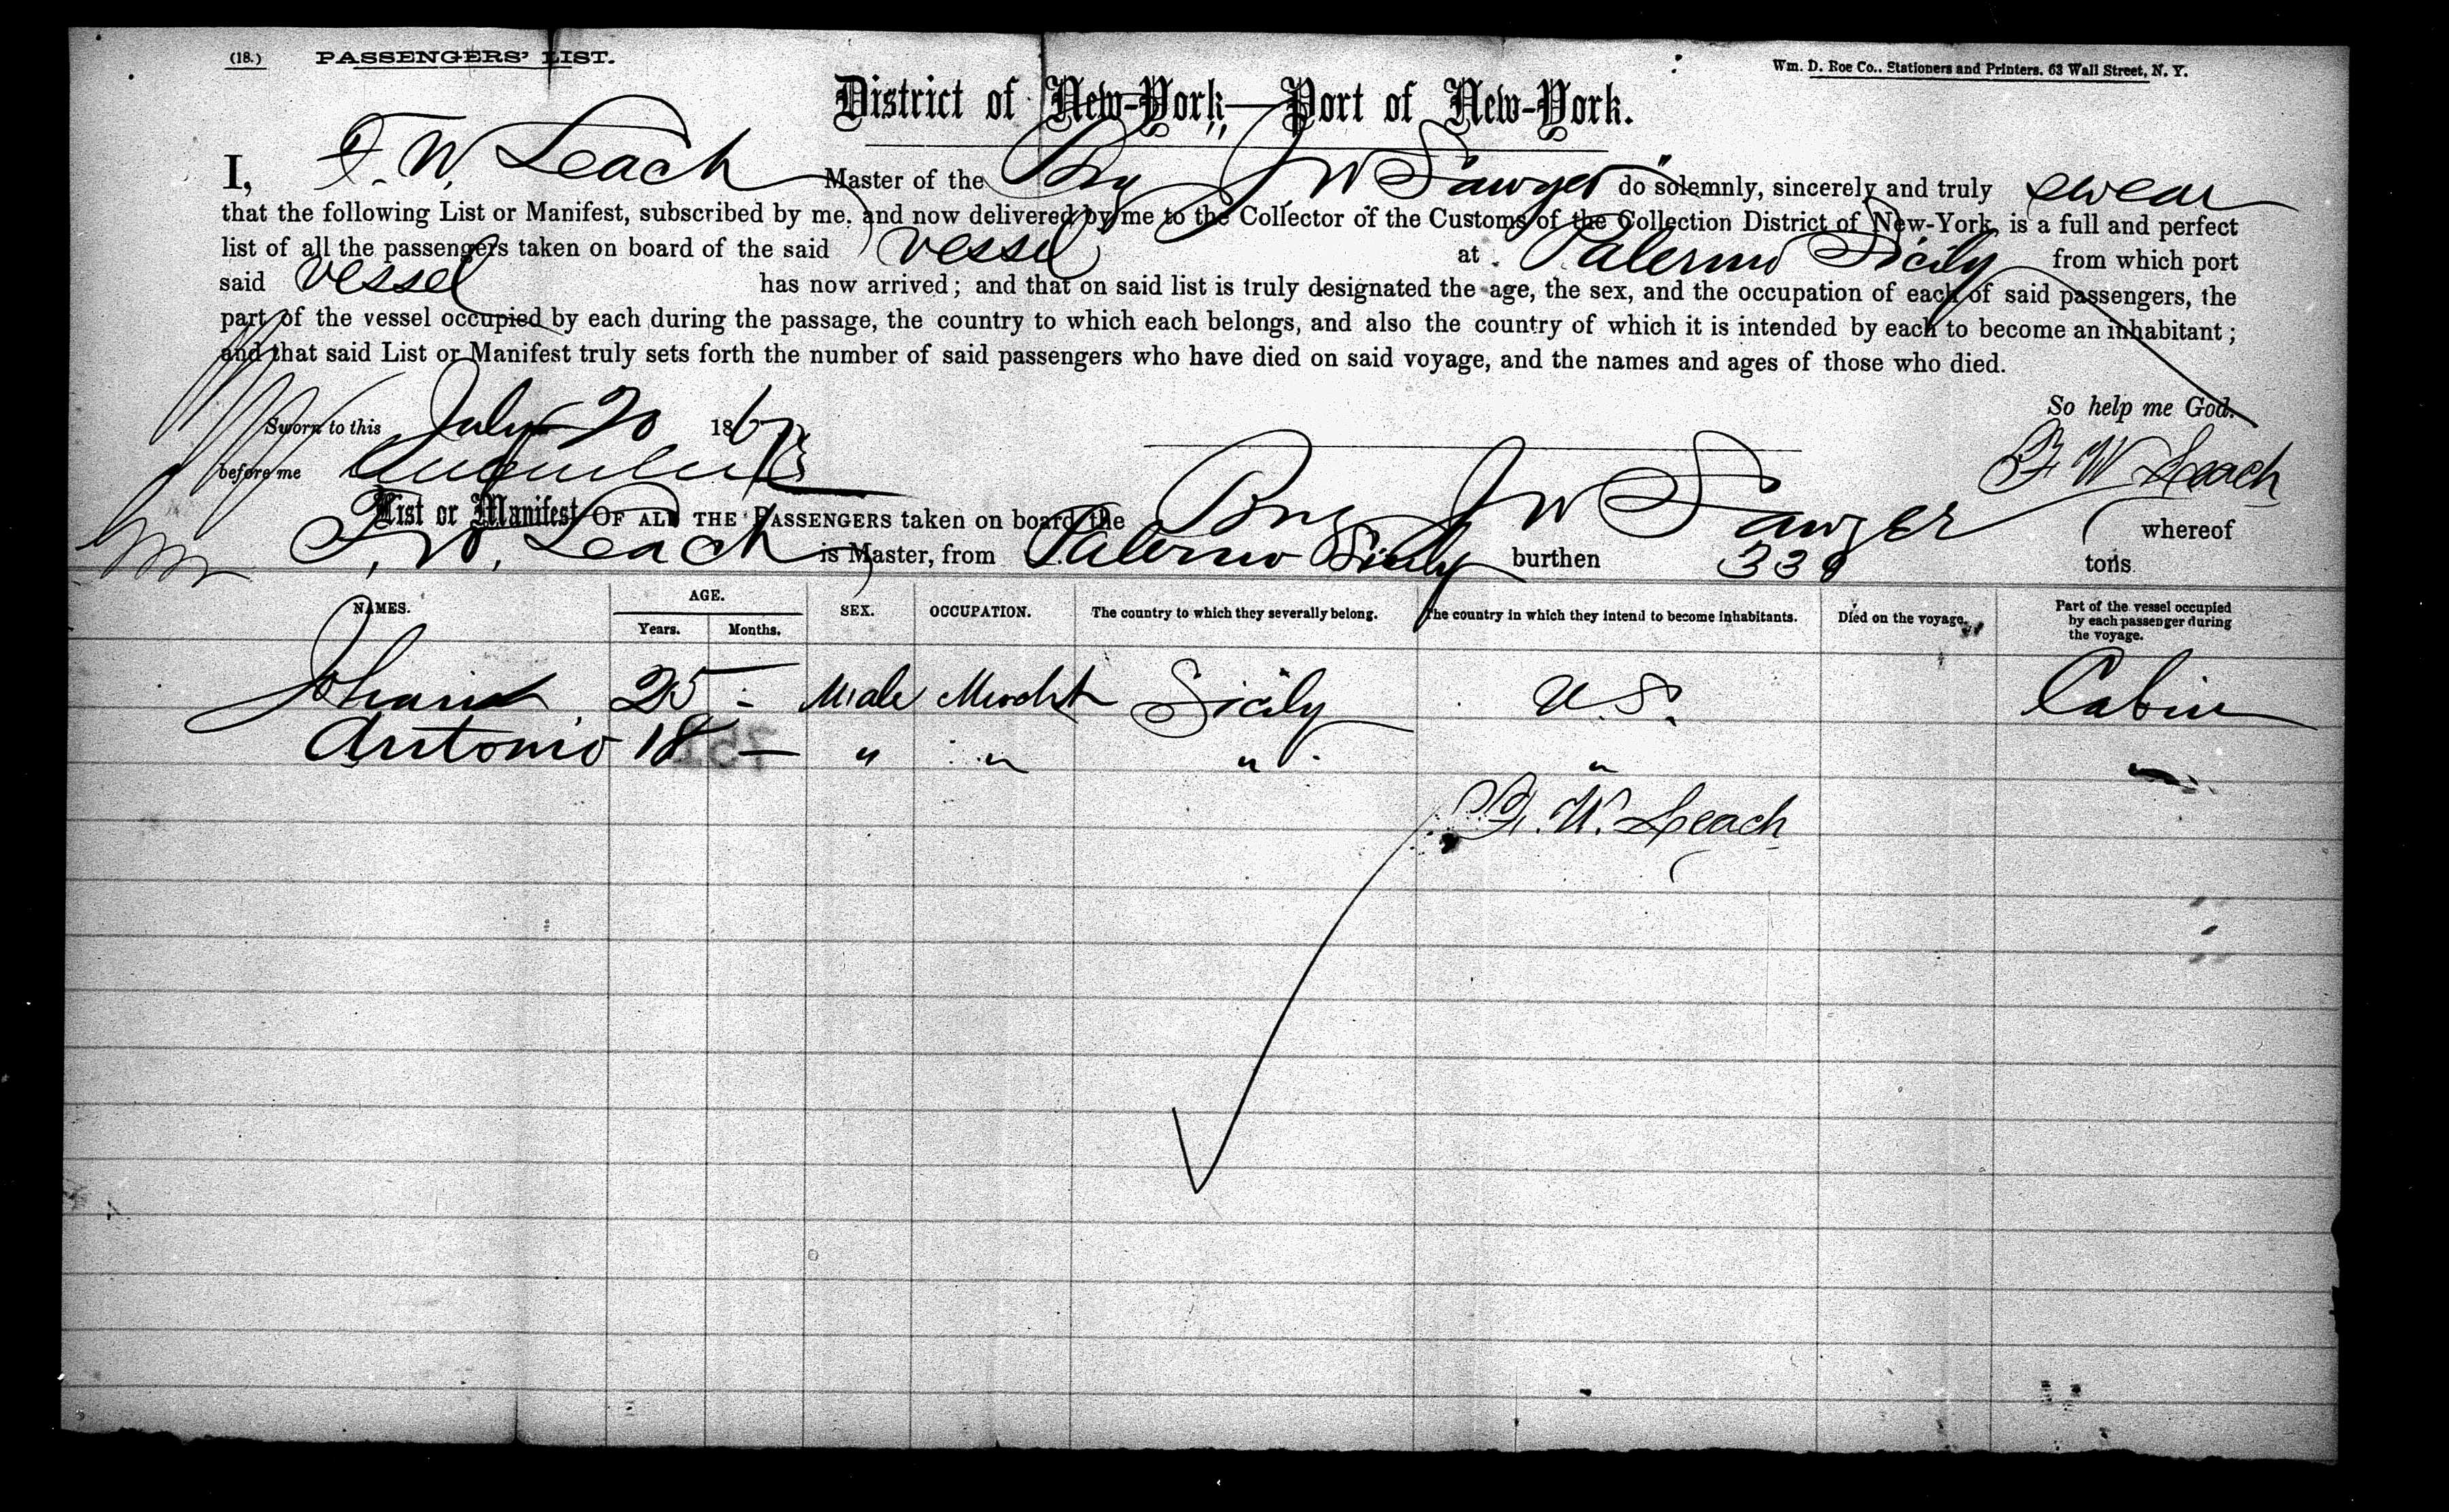 (18.) PASSENGERS' LIST. Wm. D. Roe Co., Stationers and Printers. 63 Wall Street, N. Y.
District of New-York—Port of New-York.
I, F. W. Leach Master of the Brig J W Sawyer do solemnly, sincerely and truly swear
that the following List or Manifest, subscribed by me, and now delivered by me to the Collector of the Customs of the Collection District of New-York, is a full and perfect
list of all the passengers taken on board of the said vessel at Palermo Sicily from which port
said vessel has now arrived; and that on said list is truly designated the age, the sex, and the occupation of each of said passengers, the
part of the vessel occupied by each during the passage, the country to which each belongs, and also the country of which it is intended by each to become an inhabitant;
and that said List or Manifest truly sets forth the number of said passengers who have died on said voyage, and the names and ages of those who died.
So help me God.
Sworn to this July 20 186
before me
F W Leach
List or Manifest OF ALL THE PASSENGERS taken on board the Brig J W Sawyer whereof
F. W. Leach is Master, from Palermo Sicily burthen 338 tons
NAMES. AGE. Years. Months. SEX. OCCUPATION. The country to which they severally belong. The country in which they intend to become inhabitants. Died on the voyage. Part of the vessel occupied by each passenger during the voyage.
25 - Male Sicily U.S. Cabin
Antonio 18 — " " " "
F. W. Leach